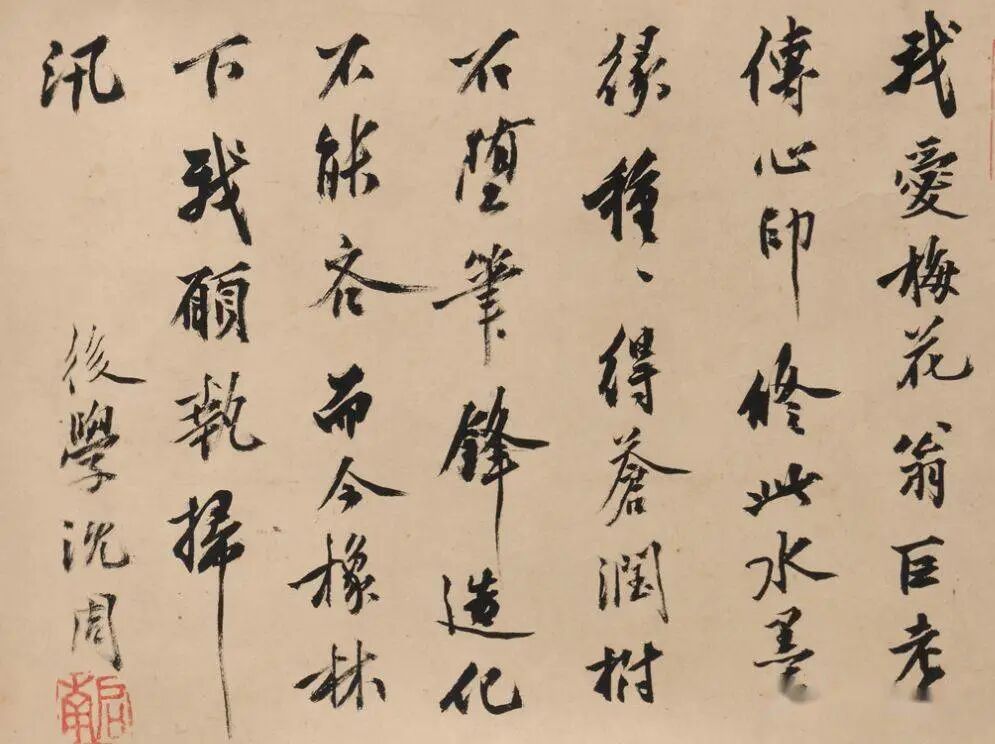 我愛梅花翁巨老
傳心師修此水墨
緣種〻得蒼潤樹
石墮筆鋒造化
不能吝而今橡林
下我願執掃
汛
後學沈周
啟南